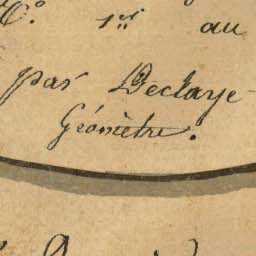 C°. 1er au
par Declaye
Géomètre.